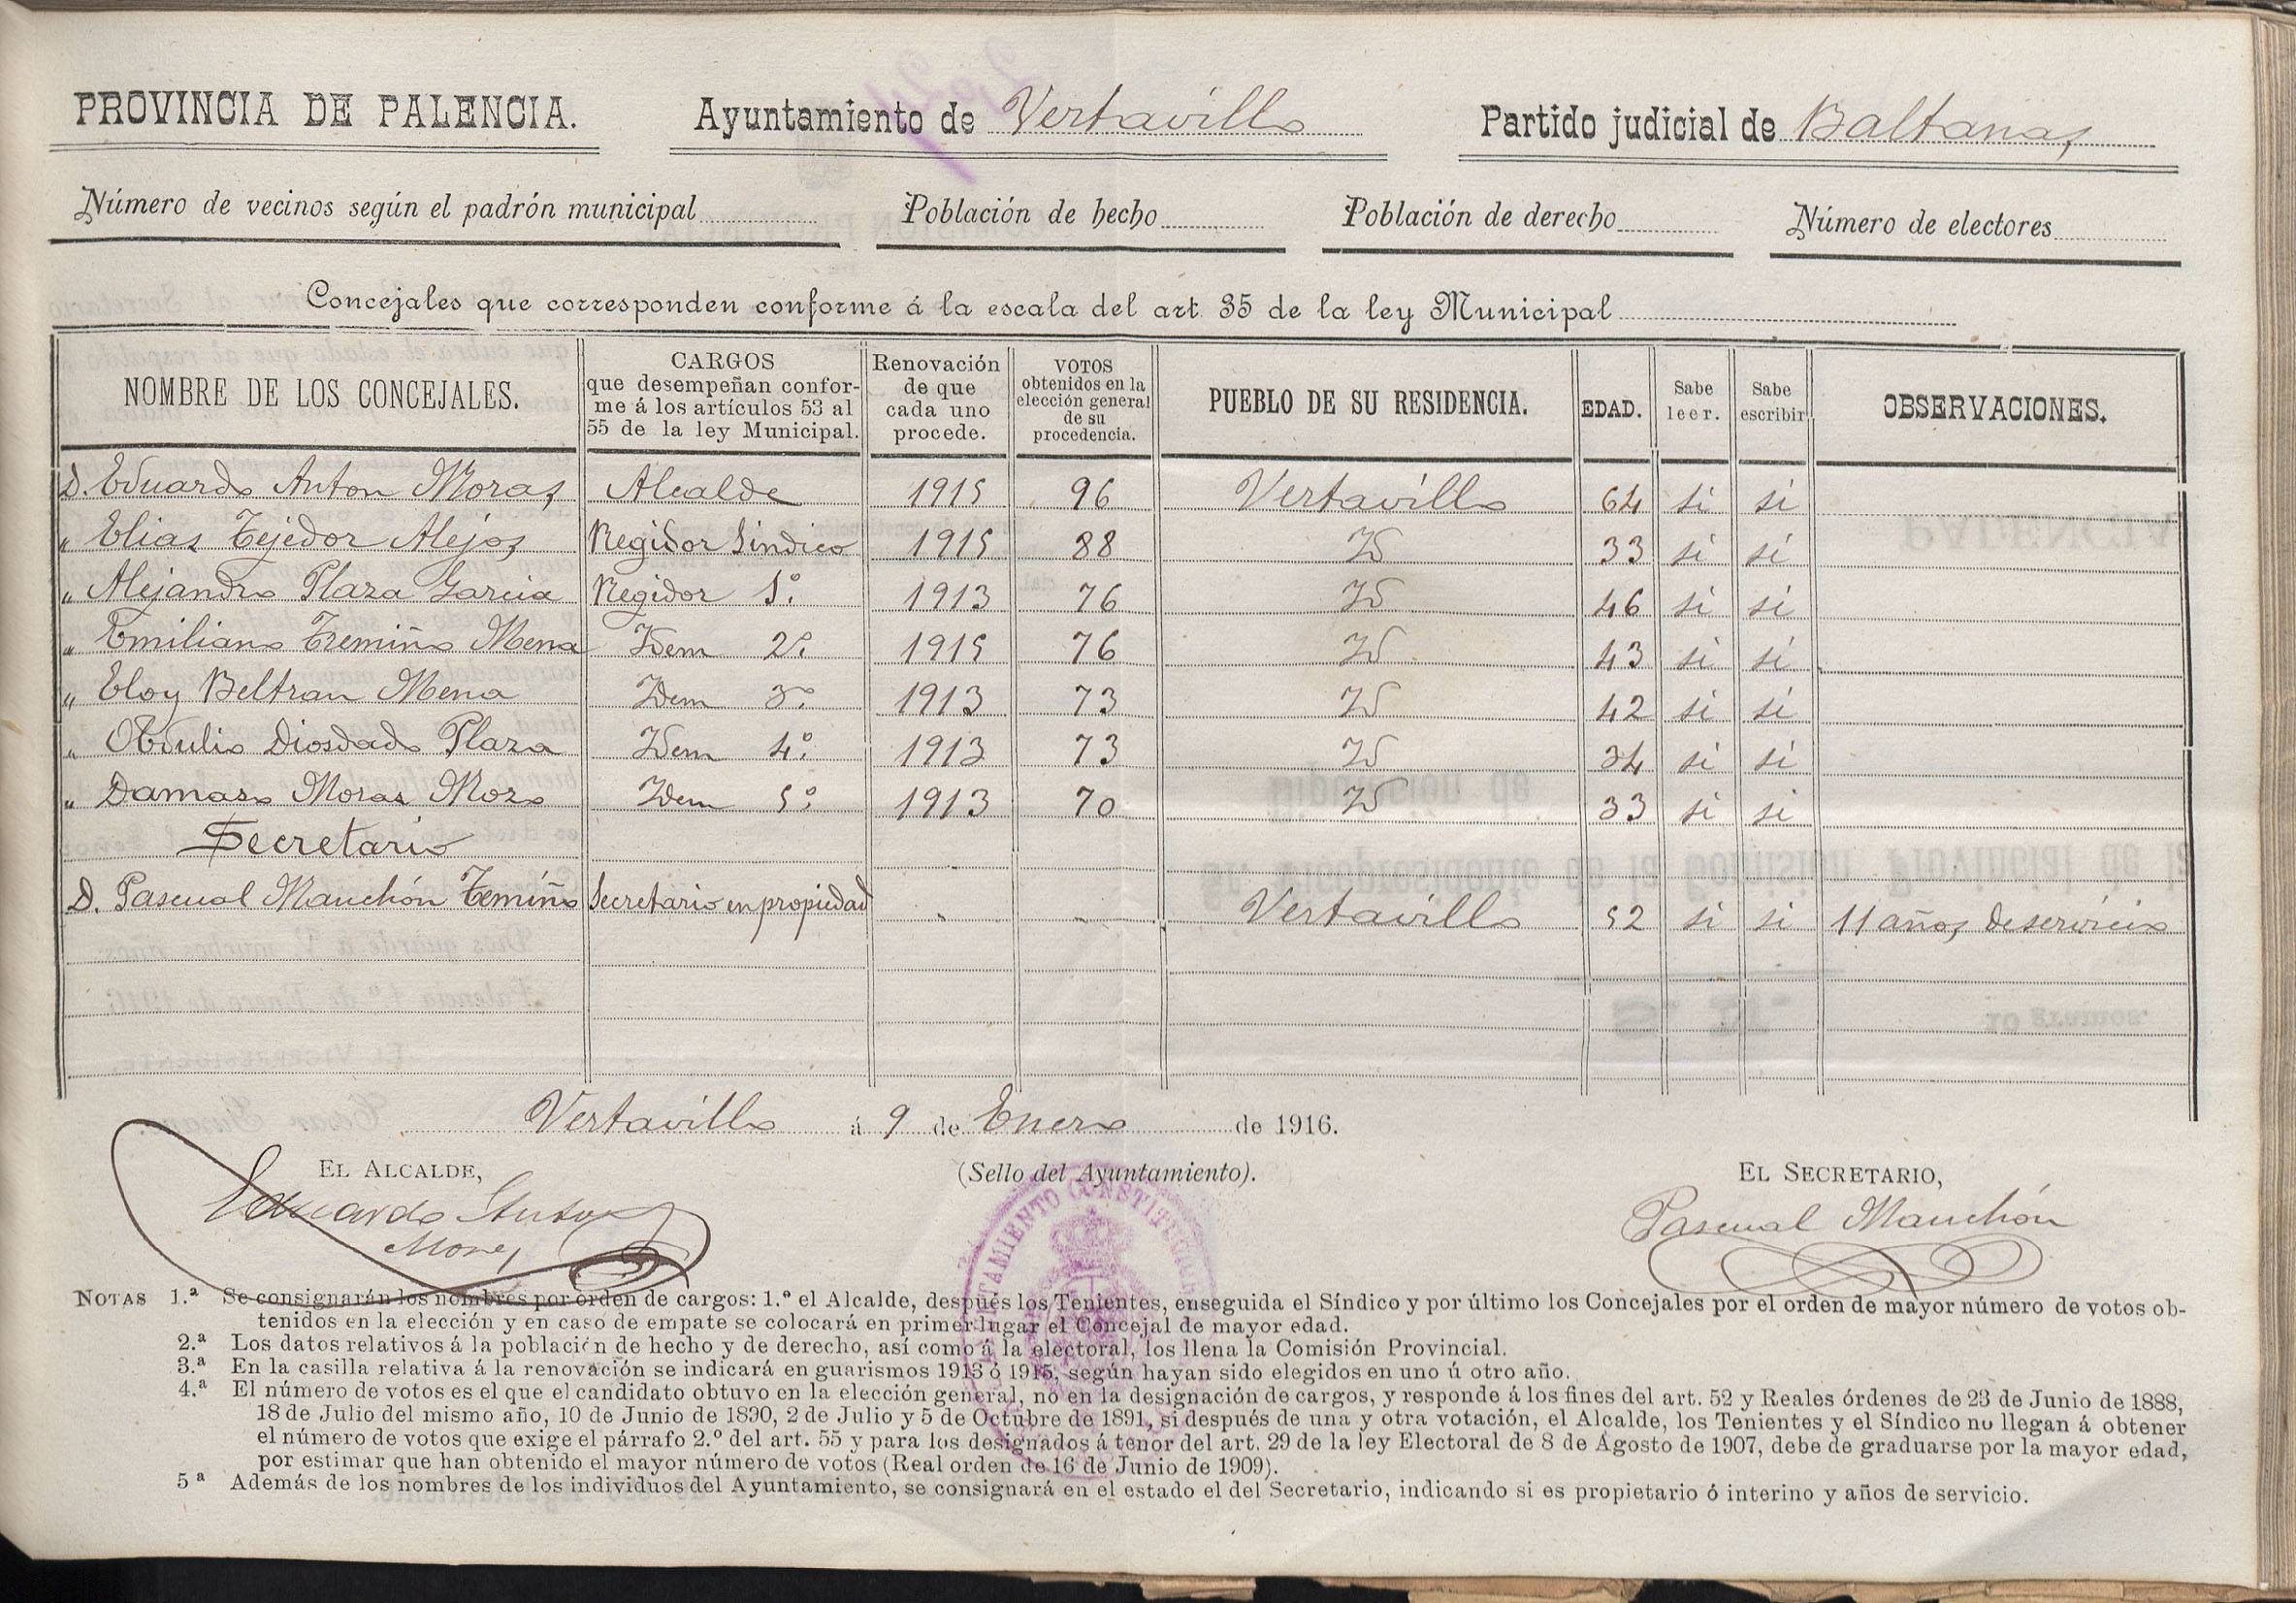 PROVINCIA DE PALENCIA. Ayuntamiento de Vertavillo Partido judicial de Baltanas
Número de vecinos según el padrón municipal Población de hecho Población de derecho Número de electores
Concejales que corresponden conforme á la escala del art 35 de la ley Municipal
NOMBRE DE LOS CONCEJALES. CARGOS que desempeñan confor-me á los artículos 53 al 55 de la ley Municipal. Renovación de que cada uno procede. VOTOS obtenidos en la elección general de su procedencia. PUEBLO DE SU RESIDENCIA. EDAD. Sabe leer. Sabe escribir OBSERVACIONES.
D. Eduardo Anton Moras Alcalde 1915 96 Vertavillo 64 si si
" Elias Tejedor Alejos Regidor Sindico 1915 88 Id 33 si si
" Alejandro Plaza Garcia Regidor 1.º 1913 76 Id 46 si si
" Emiliano Tremiño Mena Idem 2.º 1915 76 Id 43 si si
" Eloy Beltran Mena Idem 3.º 1913 73 Id 42 si si
" Obdulio Diosdado Plaza Idem 4.º 1913 73 Id 34 si si
" Damaso Moras Mozo Idem 5.º 1913 70 Id 33 si si
Secretario
D. Pascual Manchón Temiño Secretario en propiedad - - Vertavillo 52 si si 11 años de servicio
Vertavillo á 9 de Enero de 1916.
EL ALCALDE, (Sello del Ayuntamiento). EL SECRETARIO,
Eduardo Anton
Moras
Pascual Manchón
AYUNTAMIENTO CONSTITUCIONAL
NOTAS 1.ª Se consignarán los nombres por orden de cargos: 1.º el Alcalde, después los Tenientes, enseguida el Síndico y por último los Concejales por el orden de mayor número de votos ob-
tenidos en la elección y en caso de empate se colocará en primer lugar el Concejal de mayor edad.
2.ª Los datos relativos á la población de hecho y de derecho, así como á la electoral, los llena la Comisión Provincial.
3.ª En la casilla relativa á la renovación se indicará en guarismos 1913 ó 1915, según hayan sido elegidos en uno ú otro año.
4.ª El número de votos es el que el candidato obtuvo en la elección general, no en la designación de cargos, y responde á los fines del art. 52 y Reales órdenes de 23 de Junio de 1888,
18 de Julio del mismo año, 10 de Junio de 1890, 2 de Julio y 5 de Octubre de 1891, si después de una y otra votación, el Alcalde, los Tenientes y el Síndico no llegan á obtener
el número de votos que exige el párrafo 2.º del art. 55 y para los designados á tenor del art. 29 de la ley Electoral de 8 de Agosto de 1907, debe de graduarse por la mayor edad,
por estimar que han obtenido el mayor número de votos (Real orden de 16 de Junio de 1909).
5ª Además de los nombres de los individuos del Ayuntamiento, se consignará en el estado el del Secretario, indicando si es propietario ó interino y años de servicio.